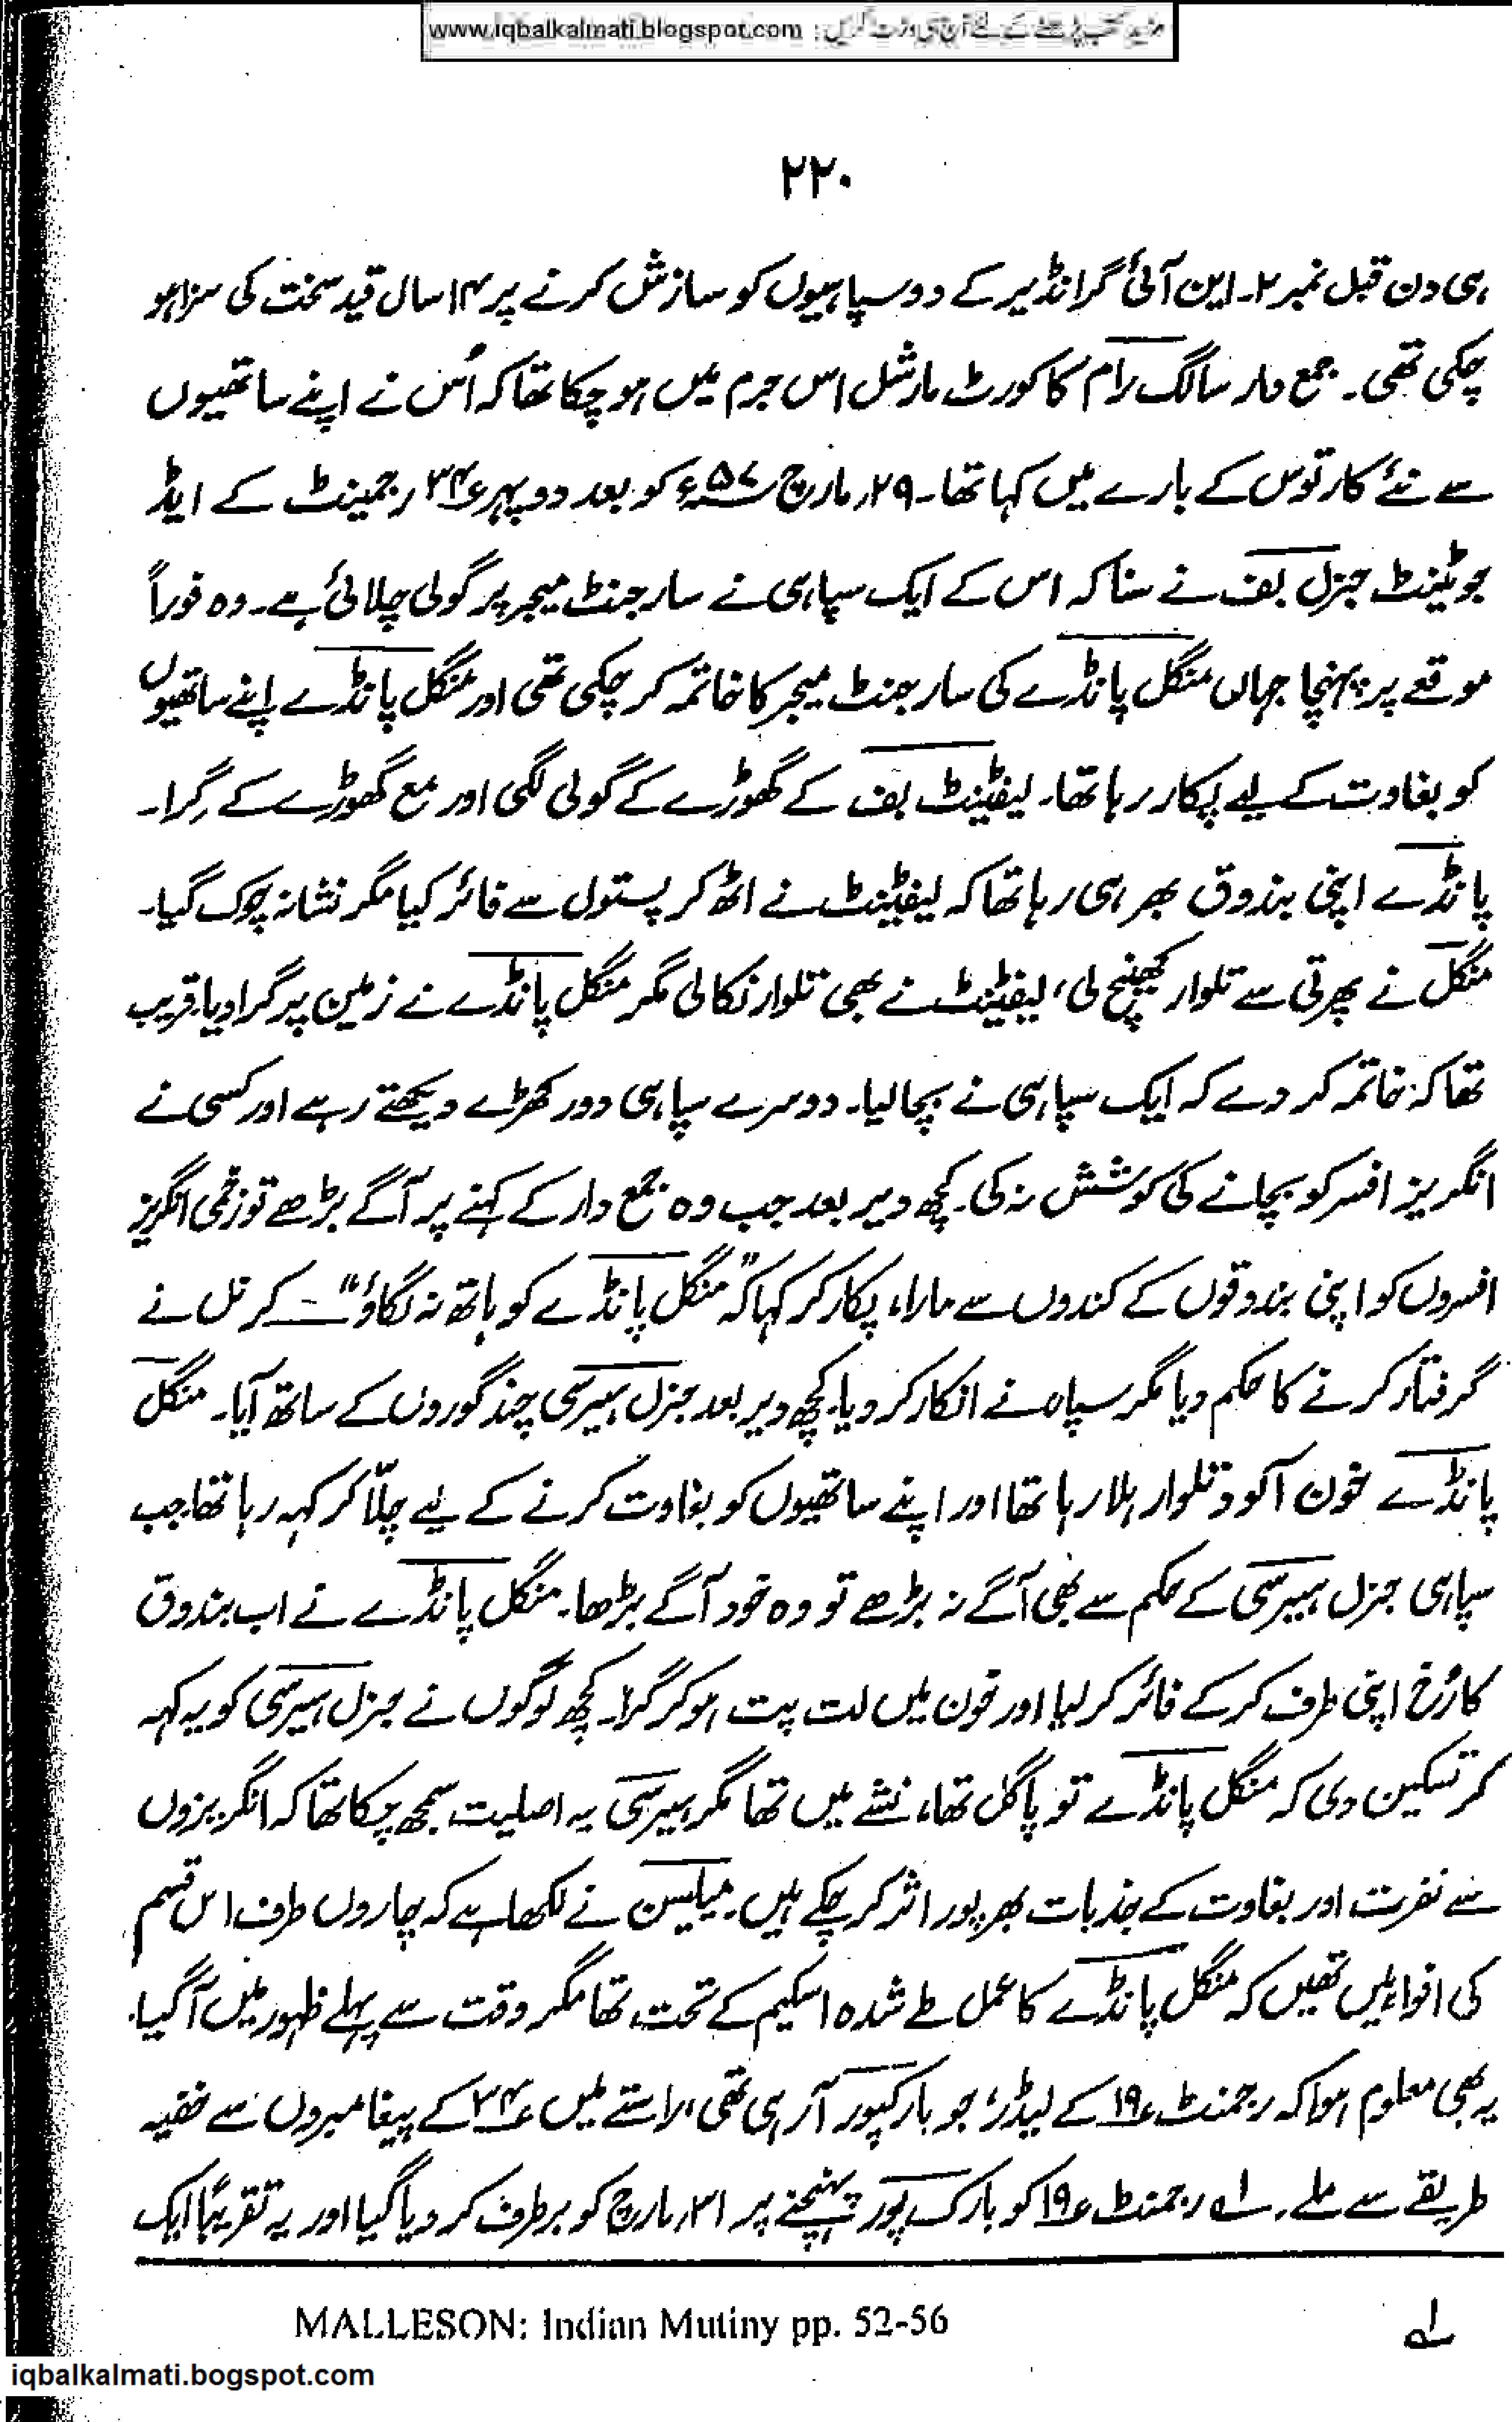 www.iqbalkalmati.blogspot.com : مزید کتب پڑھنے کے لئے آج ہی وزٹ کریں
۲۲۰
ہی دن قبل نمبر ۲۔ این آئی گرانڈیر کے دو سپاہیوں کو سازش کرنے پر ۱۴ سال قید سخت کی سزا ہو
چکی تھی۔ جمع دار سالگ رام کا کورٹ مارشل اس جرم میں ہو چکا تھا کہ اُس نے اپنے ساتھیوں
سے نئے کارتوس کے بارے میں کہا تھا۔ ۲۹؍ مارچ ۵۷ء کو بعد دوپہر ۳۴ رجمینٹ کے ایڈ
جوٹینٹ جنرل بف نے سنا کہ اس کے ایک سپاہی نے سارجنٹ میجر پر گولی چلائی ہے۔ وہ فوراً
موقعے پر پہنچا جہاں منگل پانڈے کی سارجنٹ میجر کا خاتمہ کر چکی تھی اور منگل پانڈے اپنے ساتھیوں
کو بغاوت کے لیے پکار رہا تھا۔ لیفٹینٹ بف کے گھوڑے کے گولی لگی اور مع گھوڑے کے گِرا۔
پانڈے اپنی بندوق بھر ہی رہا تھا کہ لیفٹینٹ نے اٹھ کر پستول سے فائر کیا مگر نشانہ چوک گیا۔
منگل نے پھرتی سے تلوار کھینچ لی، لیفٹینٹ نے بھی تلوار نکالی مگر منگل پانڈے نے زمین پر گرا دیا۔ قریب
تھا کہ خاتمہ کر دے کہ ایک سپاہی نے بچا لیا۔ دوسرے سپاہی دور کھڑے دیکھتے رہے اور کسی نے
انگریز افسر کو بچانے کی کوشش نہ کی۔ کچھ دیر بعد جب وہ جمع دار کے کہنے پر آگے بڑھے تو زخمی انگریز
افسروں کو اپنی بندوقوں کے کندوں سے مارا، پکار کر کہا کہ "منگل پانڈے کو ہاتھ نہ لگاؤ" ۔ کرنل نے
گرفتار کرنے کا حکم دیا مگر سپاہ نے انکار کر دیا۔ کچھ دیر بعد جنرل ہیرسی چند گوروں کے ساتھ آیا۔ منگل
پانڈے خون آلود تلوار ہلا رہا تھا اور اپنے ساتھیوں کو بغاوت کرنے کے لیے چلّا کر کہہ رہا تھا۔ جب
سپاہی جنرل ہیرسی کے حکم سے بھی آگے نہ بڑھے تو وہ خود آگے بڑھا۔ منگل پانڈے نے اب بندوق
کا رُخ اپنی طرف کر کے فائر کر لیا اور خون میں لت پت ہو کر گرا۔ کچھ لوگوں نے جنرل ہیرسی کو یہ کہہ
کر تسکین دی کہ منگل پانڈے تو پاگل تھا، نشے میں تھا مگر ہیرسی یہ اصلیت سمجھ چکا تھا کہ انگریزوں
سے نفرت اور بغاوت کے جذبات بھرپور اثر کر چکے ہیں۔ میلیسن نے لکھا ہے کہ چاروں طرف اس قسم
کی افواہیں تھیں کہ منگل پانڈے کا عمل طے شدہ اسکیم کے تحت تھا مگر وقت سے پہلے ظہور میں آ گیا۔
یہ بھی معلوم ہوا کہ رجمنٹ ۱۹ کے لیڈر، جو بارکپور آ رہی تھی، راستے میں ۳۴ کے پیغامبروں سے خفیہ
طریقے سے ملے۔ ۱؎ رجمنٹ ۱۹ کو بارک پور پہنچنے پر ۳۱؍ مارچ کو برطرف کر دیا گیا اور یہ تقریباً ایک
۱؎ MALLESON: Indian Mutiny pp. 52-56
iqbalkalmati.bogspot.com